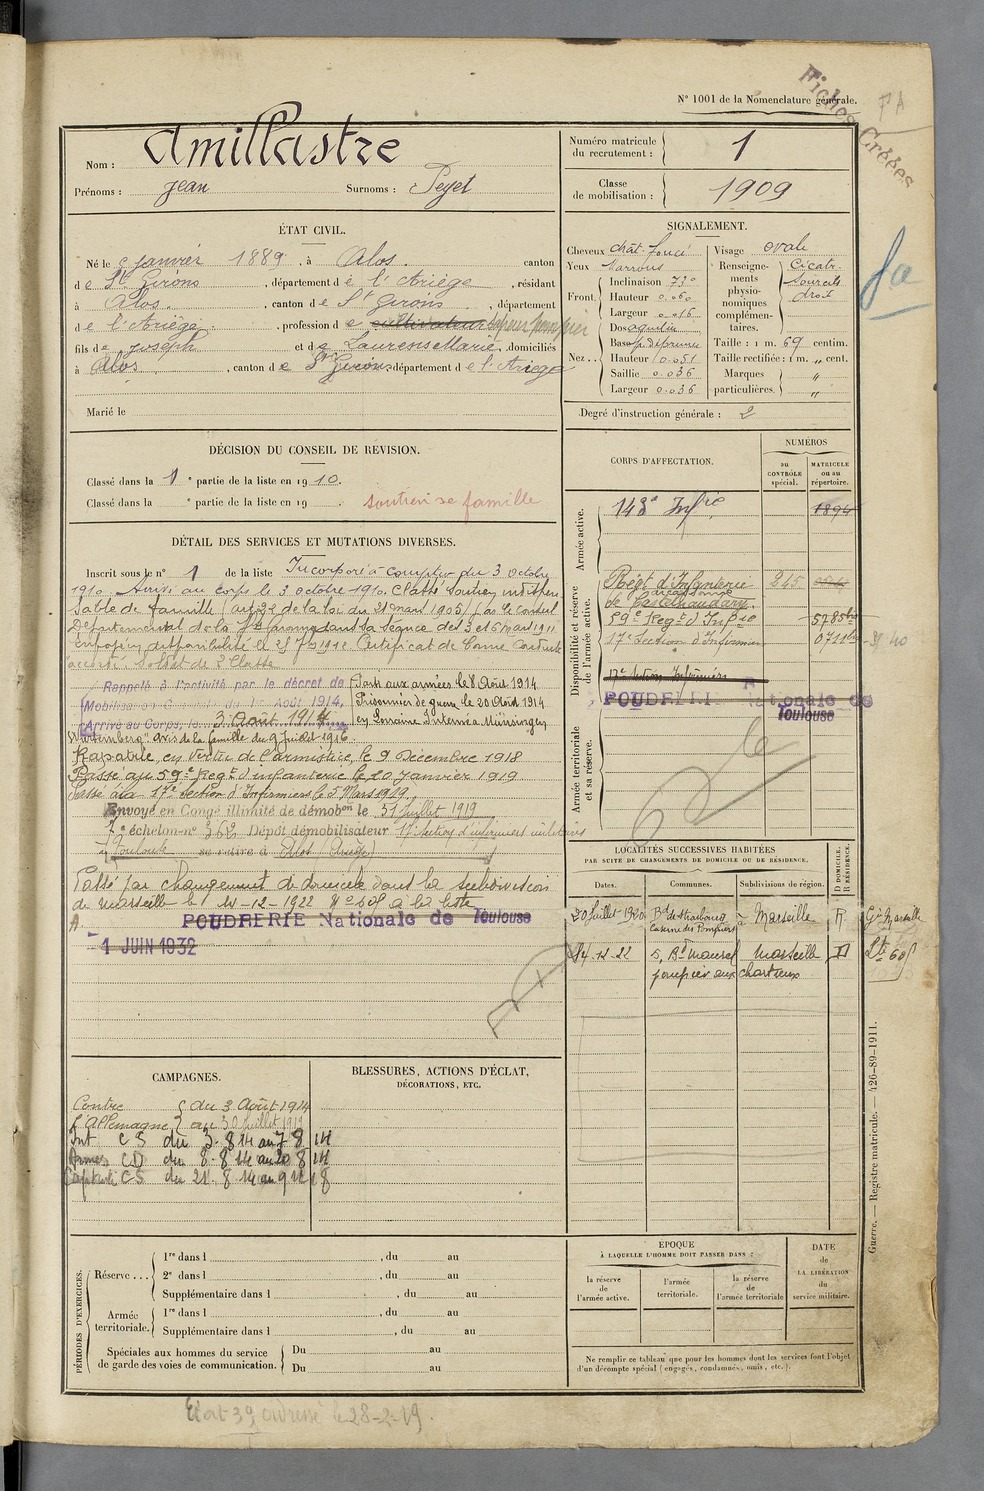 N° 1001 de la Nomenclature générale.
Fiches Créées
PA
Nom : Amillastre
Prénoms : Jean Surnoms : Peyet
Numéro matricule du recrutement : 1
Classe de mobilisation : 1909
ÉTAT CIVIL.
Né le 6 janvier 1889, à Alos canton
de St Girons, département de l'Ariège, résidant
à Alos, canton de St Girons, département
de l'Ariège, profession de cultivateur sapeur pompier
fils de Joseph et de Laurens Marie, domiciliés
à Alos, canton de St Girons département de l'Ariège
Marié le
SIGNALEMENT.
Cheveux chât. foncé
Yeux Marrons
Front. Inclinaison
Hauteur 0.060
Largeur 0.016
Nez Dos aquilin
Base
Hauteur 0.051
Saillie 0.036
Largeur 0.036
Visage ovale
Renseignements physionomiques complémentaires. Cicatr. sourcils droit
Taille : 1 m. 69 centim.
Taille rectifiée : 1 m. " cent.
Marques particulières. "
"
Degré d'instruction générale : 2
DÉCISION DU CONSEIL DE RÉVISION.
Classé dans la 1e partie de la liste en 1910.
Classé dans la e partie de la liste en 19 .
soutien de famille
DÉTAIL DES SERVICES ET MUTATIONS DIVERSES.
Inscrit sous le n° 1 de la liste Incorporé à compter du 3 octobre
1910. Arrivé au corps le 3 octobre 1910. Classé soutien indispen
sable de famille (art 22 de la loi du 21 Mars 1905) par le conseil
Départemental de la Hte Garonne dans la séance des 3 et 6 mars 1911
Envoyé en disponibilité le 25 7bre 1912 Certificat de bonne conduite
accordé. Soldat de 2e Classe
Rappelé à l'activité par le décret de
Mobilisation Générale du 1er Août 1914,
Arrivé au Corps, le 3 Août 1914
Parti aux armées le 8 Août 1914
Prisonnier de guerre le 20 Août 1914
en Lorraine Interné à Münsingen
Wurtemberg avis de la famille du 9 Juillet 1916.
Rapatrié en vertu de l'armistice le 9 Décembre 1918
Passé au 59e Régt d'infanterie le 20 Janvier 1919
Passé à la 17e Section d'Infirmiers le 5 Mars 1919
Envoyé en Congé illimité de démobon le 31 Juillet 1919
7e échelon n° 362 Dépôt démobilisateur 17e section d'infirmiers militaires
à Toulouse se retire à Alos (Ariège)
Passé par changement de domicile dans la subdivision
de Marseille le 14-12-1922 N° 608 de la liste
A. POUDRERIE Nationale de Toulouse
-1 JUIN 1932
CORPS D'AFFECTATION.
NUMÉROS
au CONTRÔLE spécial.
MATRICULE ou au répertoire.
Armée active.
143e Infrie 1894
Disponibilité et réserve de l'armée active.
Régt d'Infanterie 245
de Carcassonne Castelnaudary
59e Régt d'Infrie 5785 bis
17e Section d'Infirmiers
17e Section Infirmiers
POUDRERIE Nationale de Toulouse
Armée territoriale et sa réserve.
LOCALITÉS SUCCESSIVES HABITÉES
PAR SUITE DE CHANGEMENTS DE DOMICILE OU DE RÉSIDENCE.
Dates. Communes. Subdivisions de région. D DOMICILE. R RÉSIDENCE.
20 Juillet 1920 Bd de Strasbourg Caserne des Pompiers à Marseille R Gie Marseille
14-12-22 5, Bd Maurel Marseille D Lte 608
pompier aux chartreux
CAMPAGNES.
Contre l'Allemagne du 3 Août 1914
au 30 Juillet 1919
Int CS du 3.8.14 au 7 8 14
Armées CD du 8.8.14 au 20 8 14
Captivité CS du 21.8.14 au 9 12 18
BLESSURES, ACTIONS D'ÉCLAT,
DÉCORATIONS, ETC.
PÉRIODES D'EXERCICES.
Réserve ... 1re dans l , du au
2e dans l , du au
Supplémentaire dans l , du au
Armée territoriale. 1re dans l , du au
Supplémentaire dans l , du au
Spéciales aux hommes du service de garde des voies de communication. Du au
Du au
ÉPOQUE
À LAQUELLE L'HOMME DOIT PASSER DANS :
la réserve de l'armée active.
l'armée territoriale.
la réserve de l'armée territoriale
DATE de LA LIBÉRATION du service militaire.
Ne remplir ce tableau que pour les hommes dont les services font l'objet
d'un décompte spécial (engagés, condamnés, omis, etc.).
Guerre. — Registre matricule. — 426-89-1911.
Etat 39 adressé le 28-2-19.